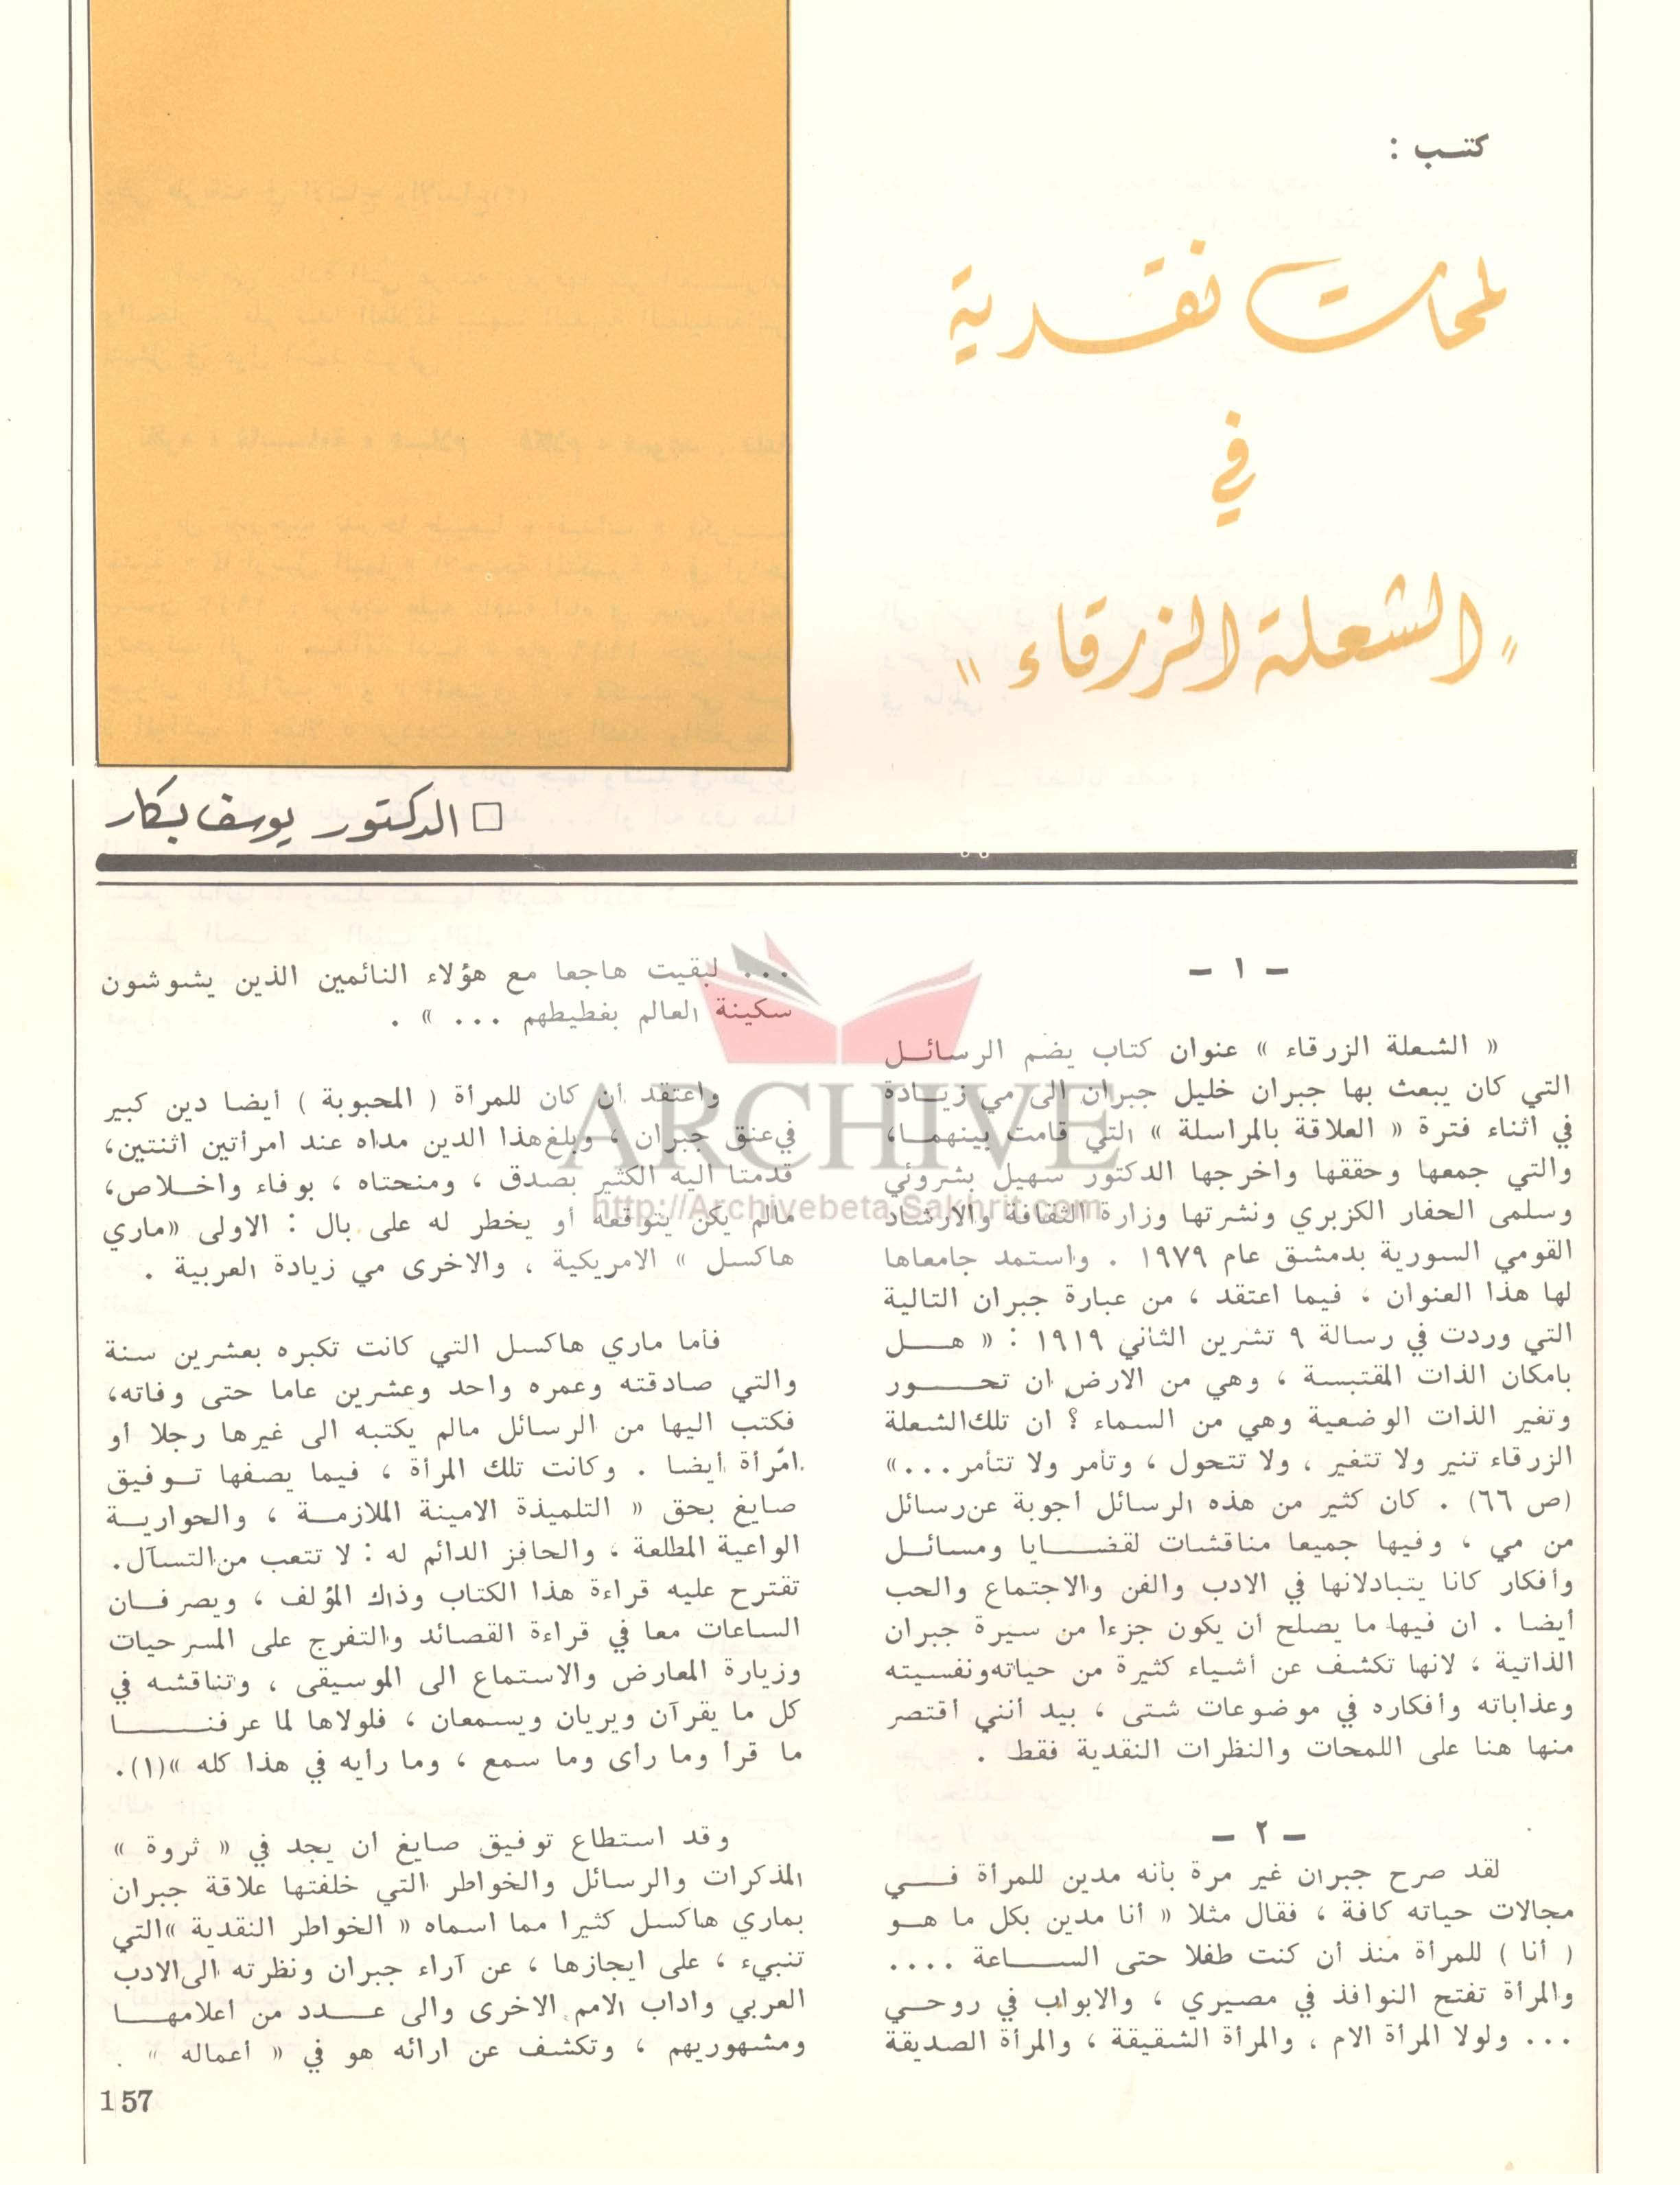 كتب :
لمحات نقدية
في
"الشعلة الزرقاء"
□ الدكتور يوسف بكار
- ١ -
« الشعلة الزرقاء » عنوان كتاب يضم الرسائل
التي كان يبعث بها جبران خليل جبران الى مي زيادة
في اثناء فترة « العلاقة بالمراسلة » التي قامت بينهما،
والتي جمعها وحققها واخرجها الدكتور سهيل بشروئي
وسلمى الحفار الكزبري ونشرتها وزارة الثقافة والارشاد
القومي السورية بدمشق عام ١٩٧٩ . واستمد جامعاها
لها هذا العنوان ، فيما اعتقد ، من عبارة جبران التالية
التي وردت في رسالة ٩ تشرين الثاني ١٩١٩ : « هل
بامكان الذات المقتبسة ، وهي من الارض ان تحور
وتغير الذات الوضعية وهي من السماء ؟ ان تلك الشعلة
الزرقاء تنير ولا تتغير ، ولا تتحول ، وتأمر ولا تتأمر...»
(ص ٦٦) . كان كثير من هذه الرسائل اجوبة عن رسائل
من مي ، وفيها جميعا مناقشات لقضايا ومسائل
وأفكار كانا يتبادلانها في الادب والفن والاجتماع والحب
أيضا . ان فيها ما يصلح أن يكون جزءا من سيرة جبران
الذاتية ، لانها تكشف عن أشياء كثيرة من حياته ونفسيته
وعذاباته وأفكاره في موضوعات شتى ، بيد أنني أقتصر
منها هنا على اللمحات والنظرات النقدية فقط .
- ٢ -
لقد صرح جبران غير مرة بأنه مدين للمرأة في
مجالات حياته كافة ، فقال مثلا « أنا مدين بكل ما هو
( أنا ) للمرأة منذ أن كنت طفلا حتى الساعة ....
والمرأة تفتح النوافذ في مصيري ، والابواب في روحي
... ولولا المرأة الام ، والمرأة الشقيقة ، والمرأة الصديقة
... لبقيت هاجعا مع هؤلاء النائمين الذين يشوشون
سكينة العالم بغطيطهم ... » .
واعتقد أن كان للمرأة ( المحبوبة ) أيضا دين كبير
في عنق جبران ، وبلغ هذا الدين مداه عند امرأتين اثنتين،
قدمتا اليه الكثير بصدق ، ومنحتاه ، بوفاء واخلاص،
مالم يكن يتوقعه أو يخطر له على بال : الاولى «ماري
هاكسل » الامريكية ، والاخرى مي زيادة العربية .
فأما ماري هاكسل التي كانت تكبره بعشرين سنة
والتي صادقته وعمره واحد وعشرين عاما حتى وفاته،
فكتب اليها من الرسائل مالم يكتبه الى غيرها رجلا أو
امرأة أيضا . وكانت تلك المرأة ، فيما يصفها توفيق
صايغ بحق « التلميذة الامينة الملازمة ، والحوارية
الواعية المطلعة ، والحافز الدائم له : لا تتعب من التسآل.
تقترح عليه قراءة هذا الكتاب وذاك المؤلف ، ويصرفان
الساعات معا في قراءة القصائد والتفرج على المسرحيات
وزيارة المعارض والاستماع الى الموسيقى ، وتناقشه في
كل ما يقرآن ويريان ويسمعان ، فلولاها لما عرفنا
ما قرأ وما رأى وما سمع ، وما رأيه في هذا كله »(١).
وقد استطاع توفيق صايغ ان يجد في « ثروة »
المذكرات والرسائل والخواطر التي خلفتها علاقة جبران
بماري هاكسل كثيرا مما اسماه « الخواطر النقدية »التي
تنبيء ، على ايجازها ، عن آراء جبران ونظرته الى الادب
العربي واداب الامم الاخرى والى عدد من اعلامها
ومشهوريهم ، وتكشف عن ارائه هو في « أعماله » .
157
ARCHIVE
http://Archivebeta.Sakhrit.com